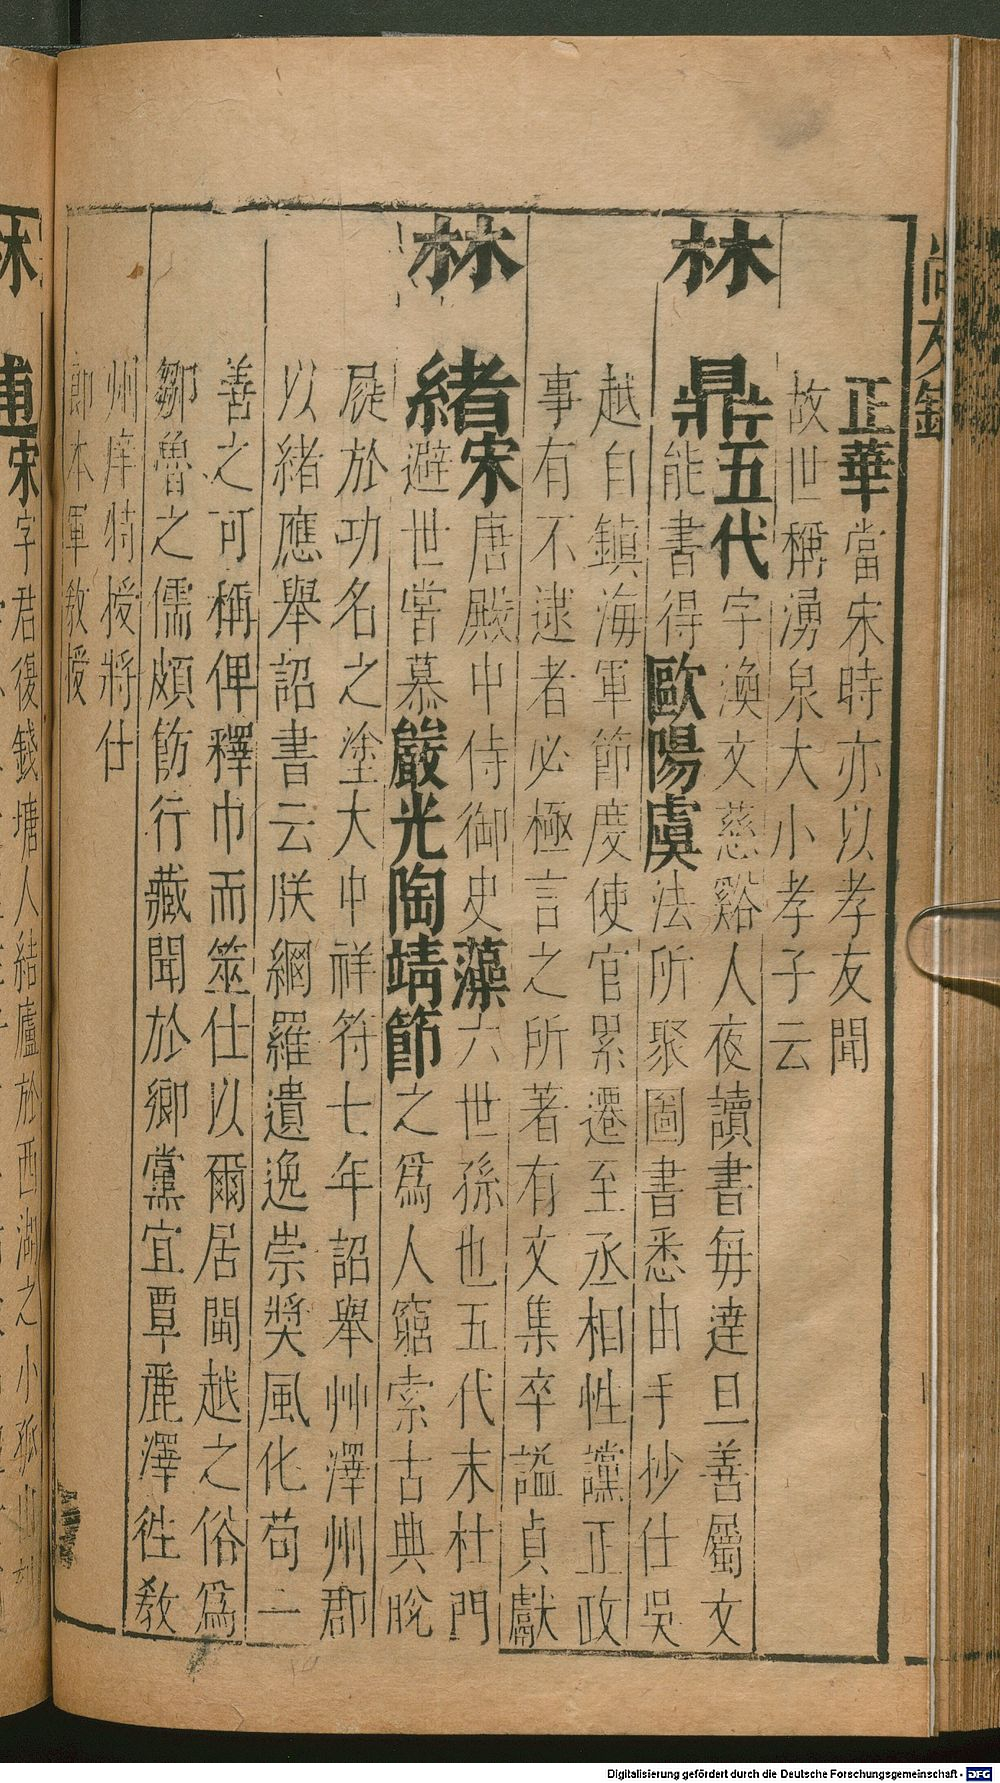 尚友錄
正華當宋時亦以孝友聞
故世稱湧泉大小孝子云
林鼎五代字渙文慈谿人夜讀書每達旦善屬文
能書得歐陽虞法所聚圖書悉由手抄仕吳
越自鎮海軍節度使官累遷至丞相性讜正政
事有不逮者必極言之所著有文集卒謚貞獻
林緒宋唐殿中侍御史藻六世孫也五代末杜門
避世嘗慕嚴光陶靖節之爲人窮索古典脫
屣於功名之塗大中祥符七年詔舉艸澤州郡
以緒應舉詔書云朕網羅遺逸崇奬風化苟一
善之可稱俾釋巾而筮仕以爾居閩越之俗爲
鄒魯之儒頗飭行藏聞於鄉黨宜覃麗澤徃敎
州庠特授將仕
郎本軍敎授
林逋宋字君復錢塘人結廬於西湖之小孤山
Digitalisierung gefördert durch die Deutsche Forschungsgemeinschaft - DFG